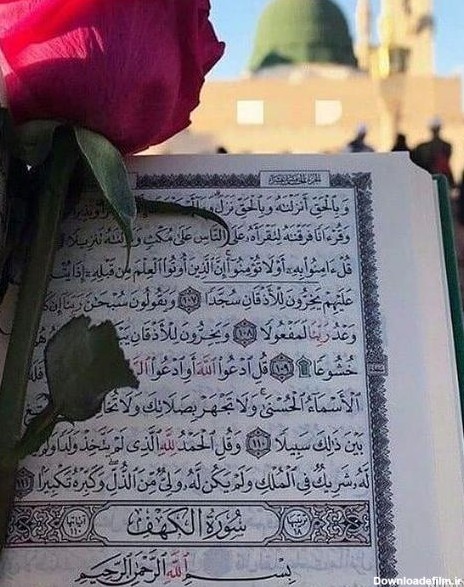 الجزء الخامس عشر
وَبِالْحَقِّ أَنزَلْنَٰهُ وَبِالْحَقِّ نَزَلَ
وَقُرْءَانًا فَرَقْنَٰهُ لِتَقْرَأَهُۥ عَلَى النَّاسِ عَلَىٰ مُكْثٍ وَنَزَّلْنَٰهُ تَنزِيلًا
قُلْ ءَامِنُوا۟ بِهِۦٓ أَوْ لَا تُؤْمِنُوٓا۟ إِنَّ الَّذِينَ أُوتُوا۟ الْعِلْمَ مِن قَبْلِهِۦٓ إِذَا
عَلَيْهِمْ يَخِرُّونَ لِلْأَذْقَانِ سُجَّدًا ١٠٧ وَيَقُولُونَ سُبْحَٰنَ رَبِّنَآ إِن
وَعْدُ رَبِّنَا لَمَفْعُولًا ١٠٨ وَيَخِرُّونَ لِلْأَذْقَانِ
خُشُوعًا ١٠٩ قُلِ ادْعُوا۟ اللَّهَ أَوِ ادْعُوا۟
الْأَسْمَآءُ الْحُسْنَىٰ وَلَا تَجْهَرْ بِصَلَاتِكَ وَلَا
بَيْنَ ذَٰلِكَ سَبِيلًا ١١٠ وَقُلِ الْحَمْدُ لِلَّهِ الَّذِى لَمْ يَتَّخِذْ وَلَدًا وَلَمْ
لَّهُۥ شَرِيكٌ فِى الْمُلْكِ وَلَمْ يَكُن لَّهُۥ وَلِىٌّ مِّنَ الذُّلِّ وَكَبِّرْهُ تَكْبِيرًا ١١١
سُورَةُ الْكَهْفِ
بِسْمِ اللَّهِ الرَّحْمَٰنِ الرَّحِيمِ
Downloadefilm.ir